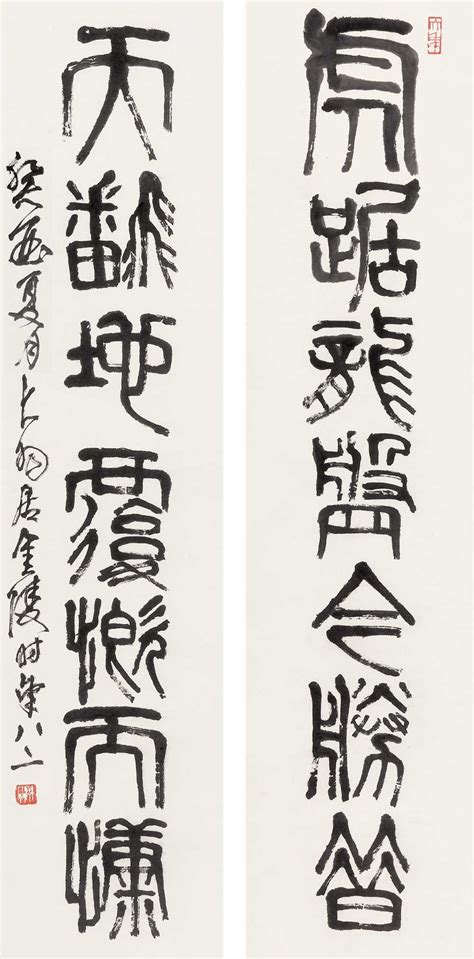 虎踞龍盤今勝昔
天飜地覆慨而慷
癸酉夏月大羽居金陵时年八二